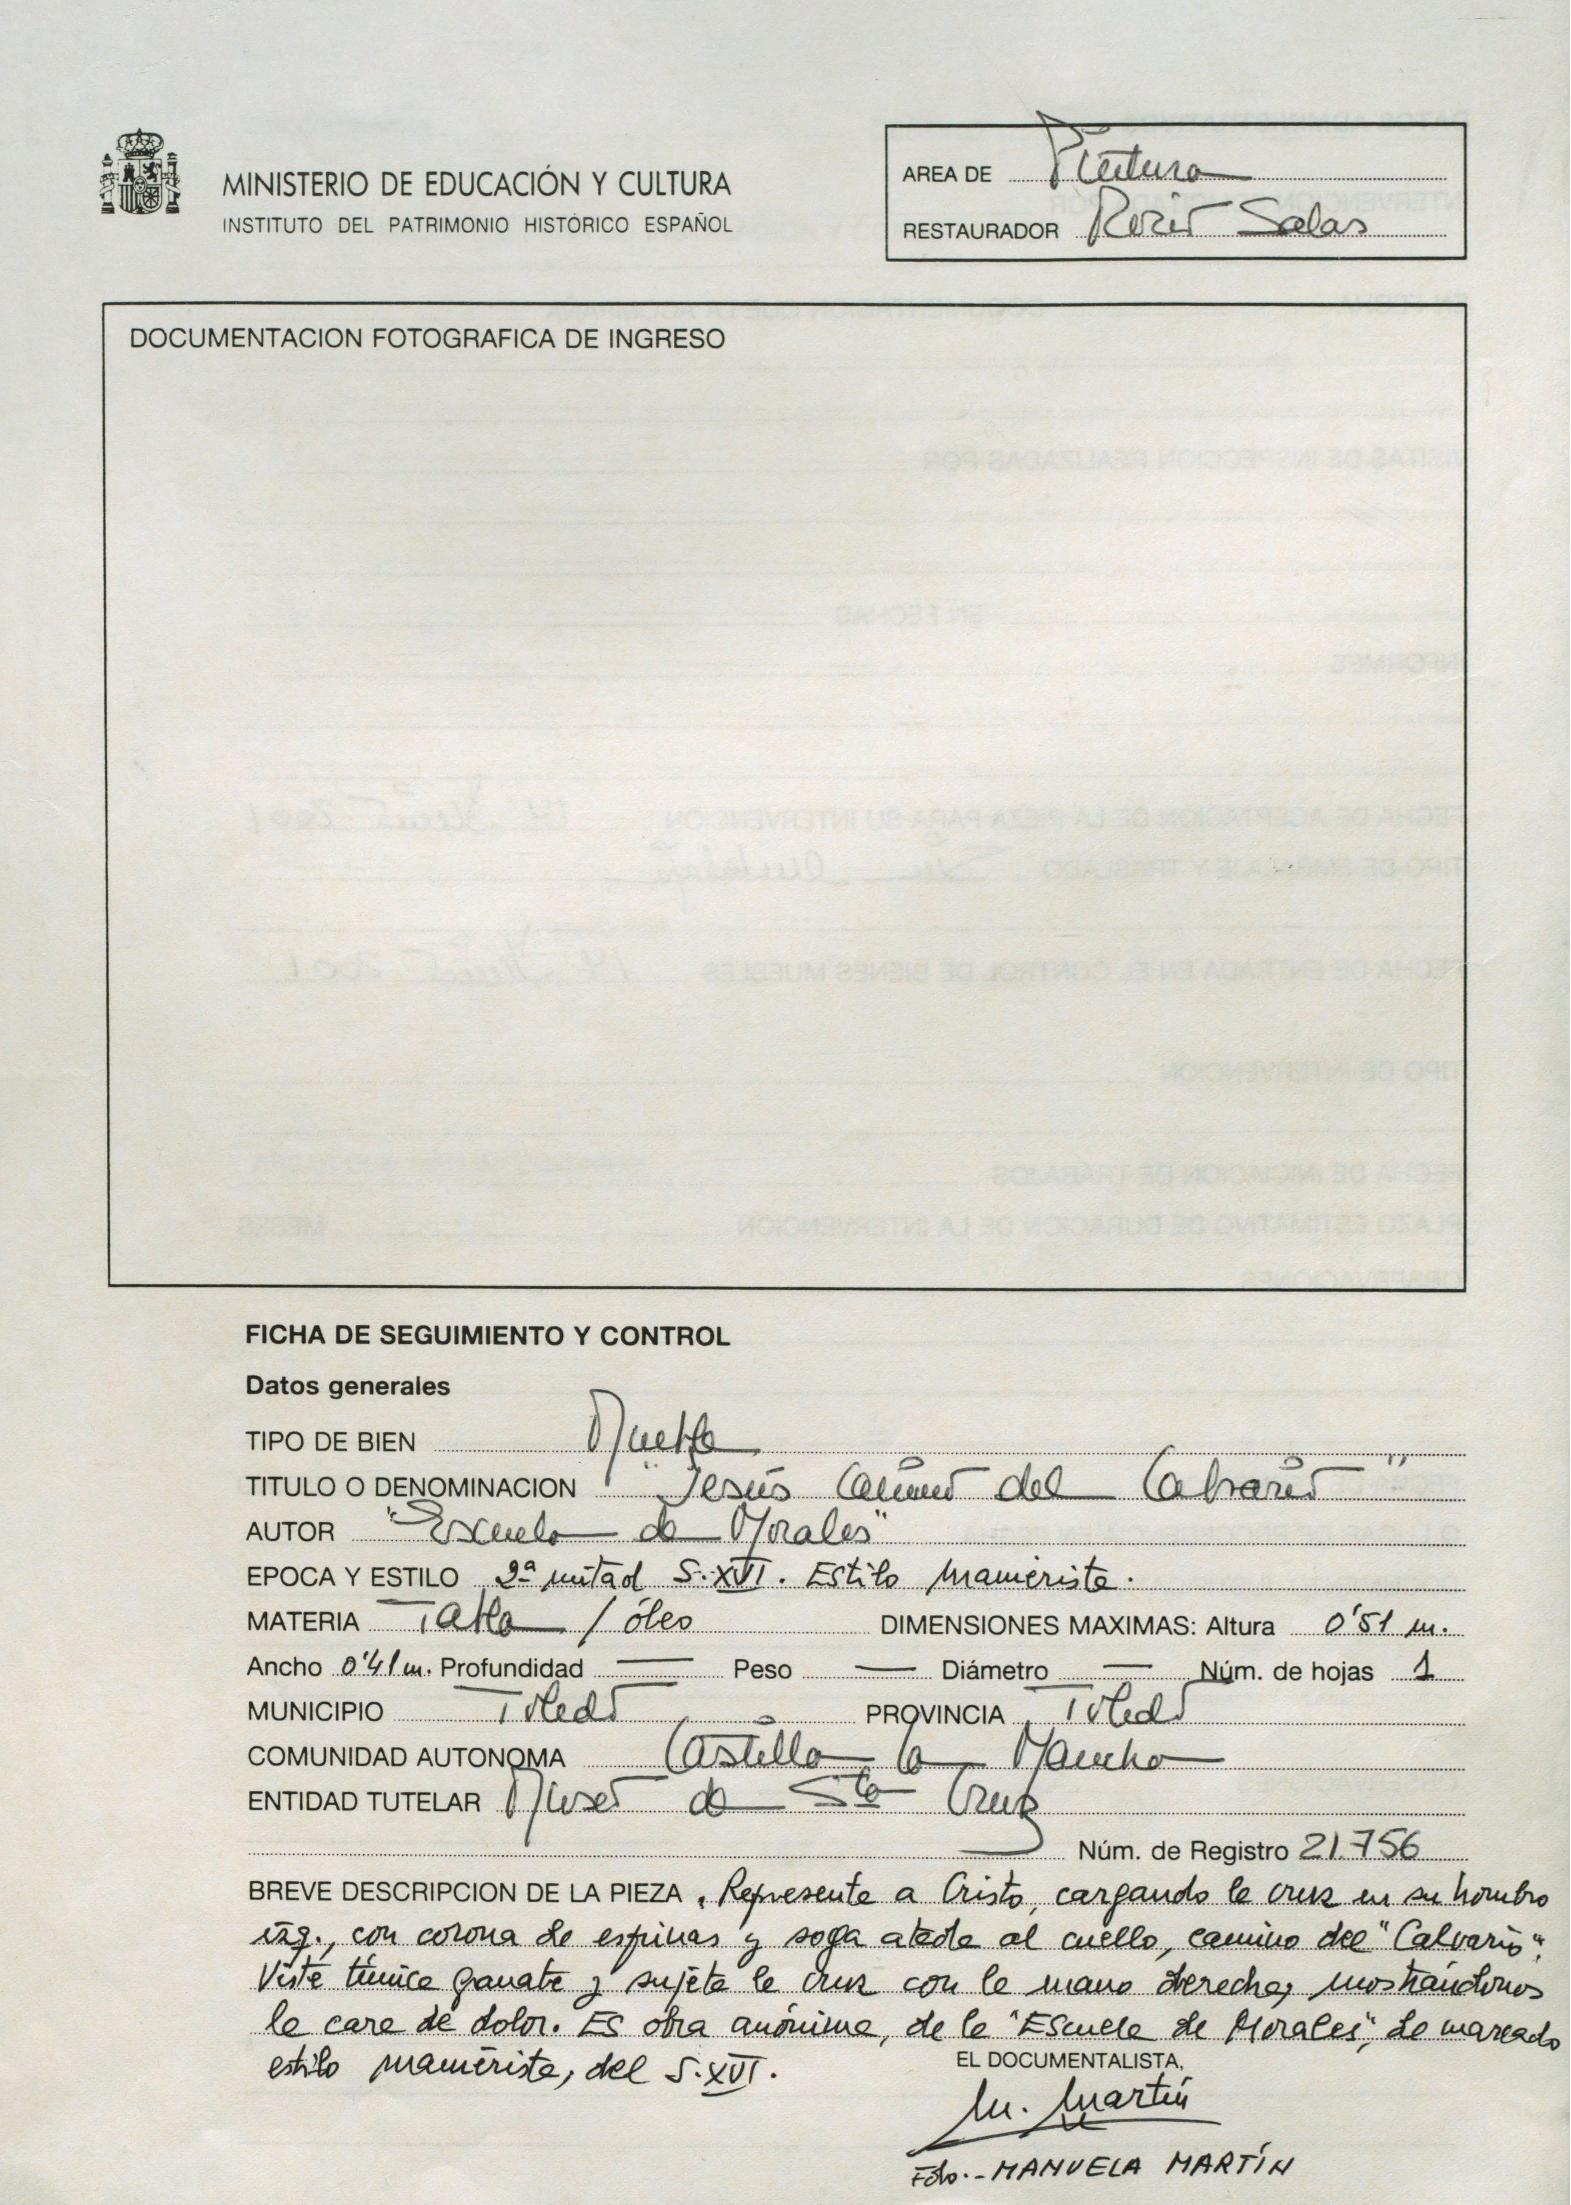 MINISTERIO DE EDUCACIÓN Y CULTURA
INSTITUTO DEL PATRIMONIO HISTÓRICO ESPAÑOL
AREA DE Pintura
RESTAURADOR Rocío Salas
DOCUMENTACION FOTOGRAFICA DE INGRESO
FICHA DE SEGUIMIENTO Y CONTROL
Datos generales
TIPO DE BIEN Mueble
TITULO O DENOMINACION "Jesús Camino del Calvario"
AUTOR "Escuela de Morales"
EPOCA Y ESTILO 2ª mitad S.XVI. Estilo Manierista.
MATERIA Tabla / óleo DIMENSIONES MAXIMAS: Altura 0'51 m.
Ancho 0'41 m. Profundidad — Peso — Diámetro — Núm. de hojas 1
MUNICIPIO Toledo PROVINCIA Toledo
COMUNIDAD AUTONOMA Castilla la Mancha
ENTIDAD TUTELAR Museo de Sta Cruz
Núm. de Registro 21.756
BREVE DESCRIPCION DE LA PIEZA. Representa a Cristo, cargando la cruz en su hombro
izq., con corona de espinas y soga atada al cuello, camino del "Calvario".
Viste túnica granate y sujeta la cruz con la mano derecha, mostrándonos
la cara de dolor. Es obra anónima, de la "Escuela de Morales", de marcado
estilo manierista, del S.XVI.
EL DOCUMENTALISTA,
M. Martín
Fdo.- MANUELA MARTÍN